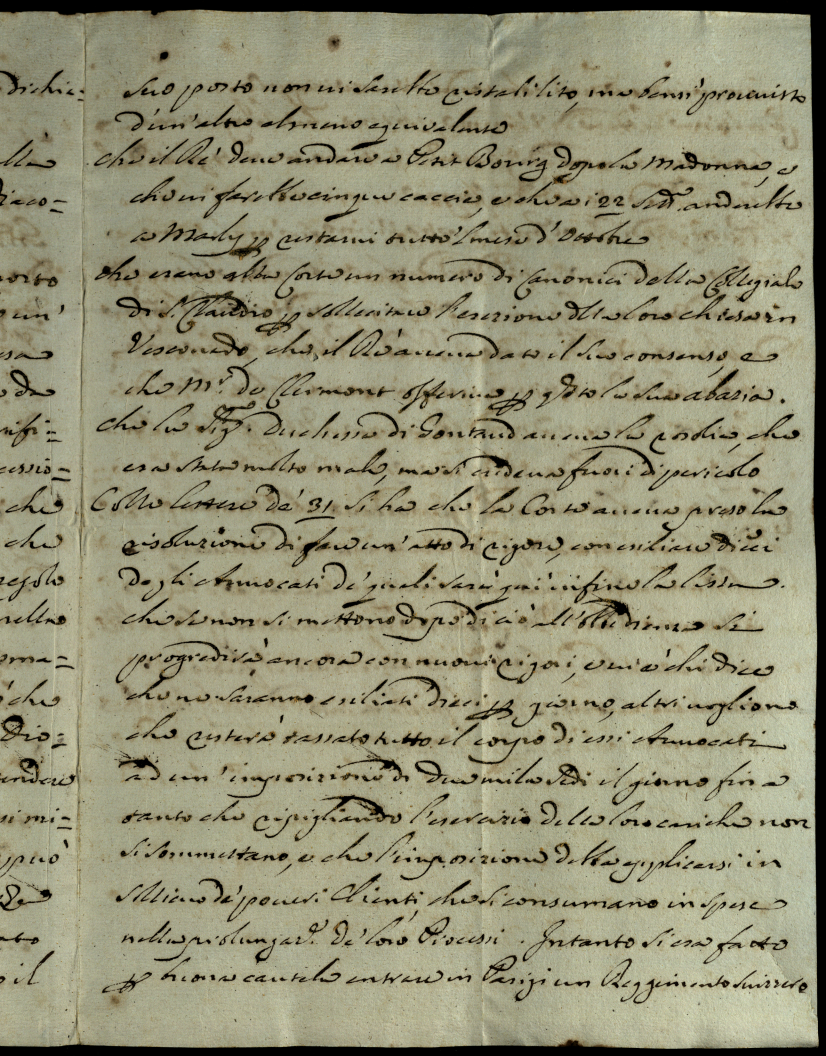 suo posto non ui sarebbe ristabilito, ma bensi prouuisto
d'un'altro almeno equivalente
che il Rè deue andare a Petit Bourg dopo la Madonna, e
che ui farebbe cinque caccie, e che ai 22 Sett.e anderebbe
a Marly p restarui tutto 'l mese d'Ottobre
che erano alla Corte un numero di Canonici della Collegiale
di S.t Claudio p sollecitare l'erezione della loro chiesa in
Vescouado, che il Rè aueua dato il suo consenso, e
che M.r de Clermont offeriua p q.sto la sua abazia.
che la Sig.ra Duchessa di Gontaud aueua la rosolia, che
era stata molto male, ma si credeua fuori di pericolo
Colle lettere de' 31 si ha che la Corte aueua preso la
risoluzione di fare un'atto di rigore, con esiliare dieci
degli Auuocati de' quali sarà qui infine la lista.
che se non si mettono dopo di ciò all'obbedienza si
progredirà ancora con nuoui rigori, e ui è chi dice
che ne saranno esiliati dieci p giorno, altri uogliono
che resterà tassato tutto il corpo di essi Auuocati
ad un'imposizione di due mila Scudi il giorno fin a
tanto che ripigliando l'esercizio delle loro cariche non
si sommettano, e che l'imposizione debba applicarsi in
sollieuo de' poueri Clienti che si consumano in spese
nella prolungaz.e de' loro Processi. Intanto si era fatto
p buona cautela entrare in Parigi un Reggimento Suizzero
dichia=
alla
diaco=
posto
un'
esa
da
che
che
regole
oma=
che
endere
si mi=
può
il